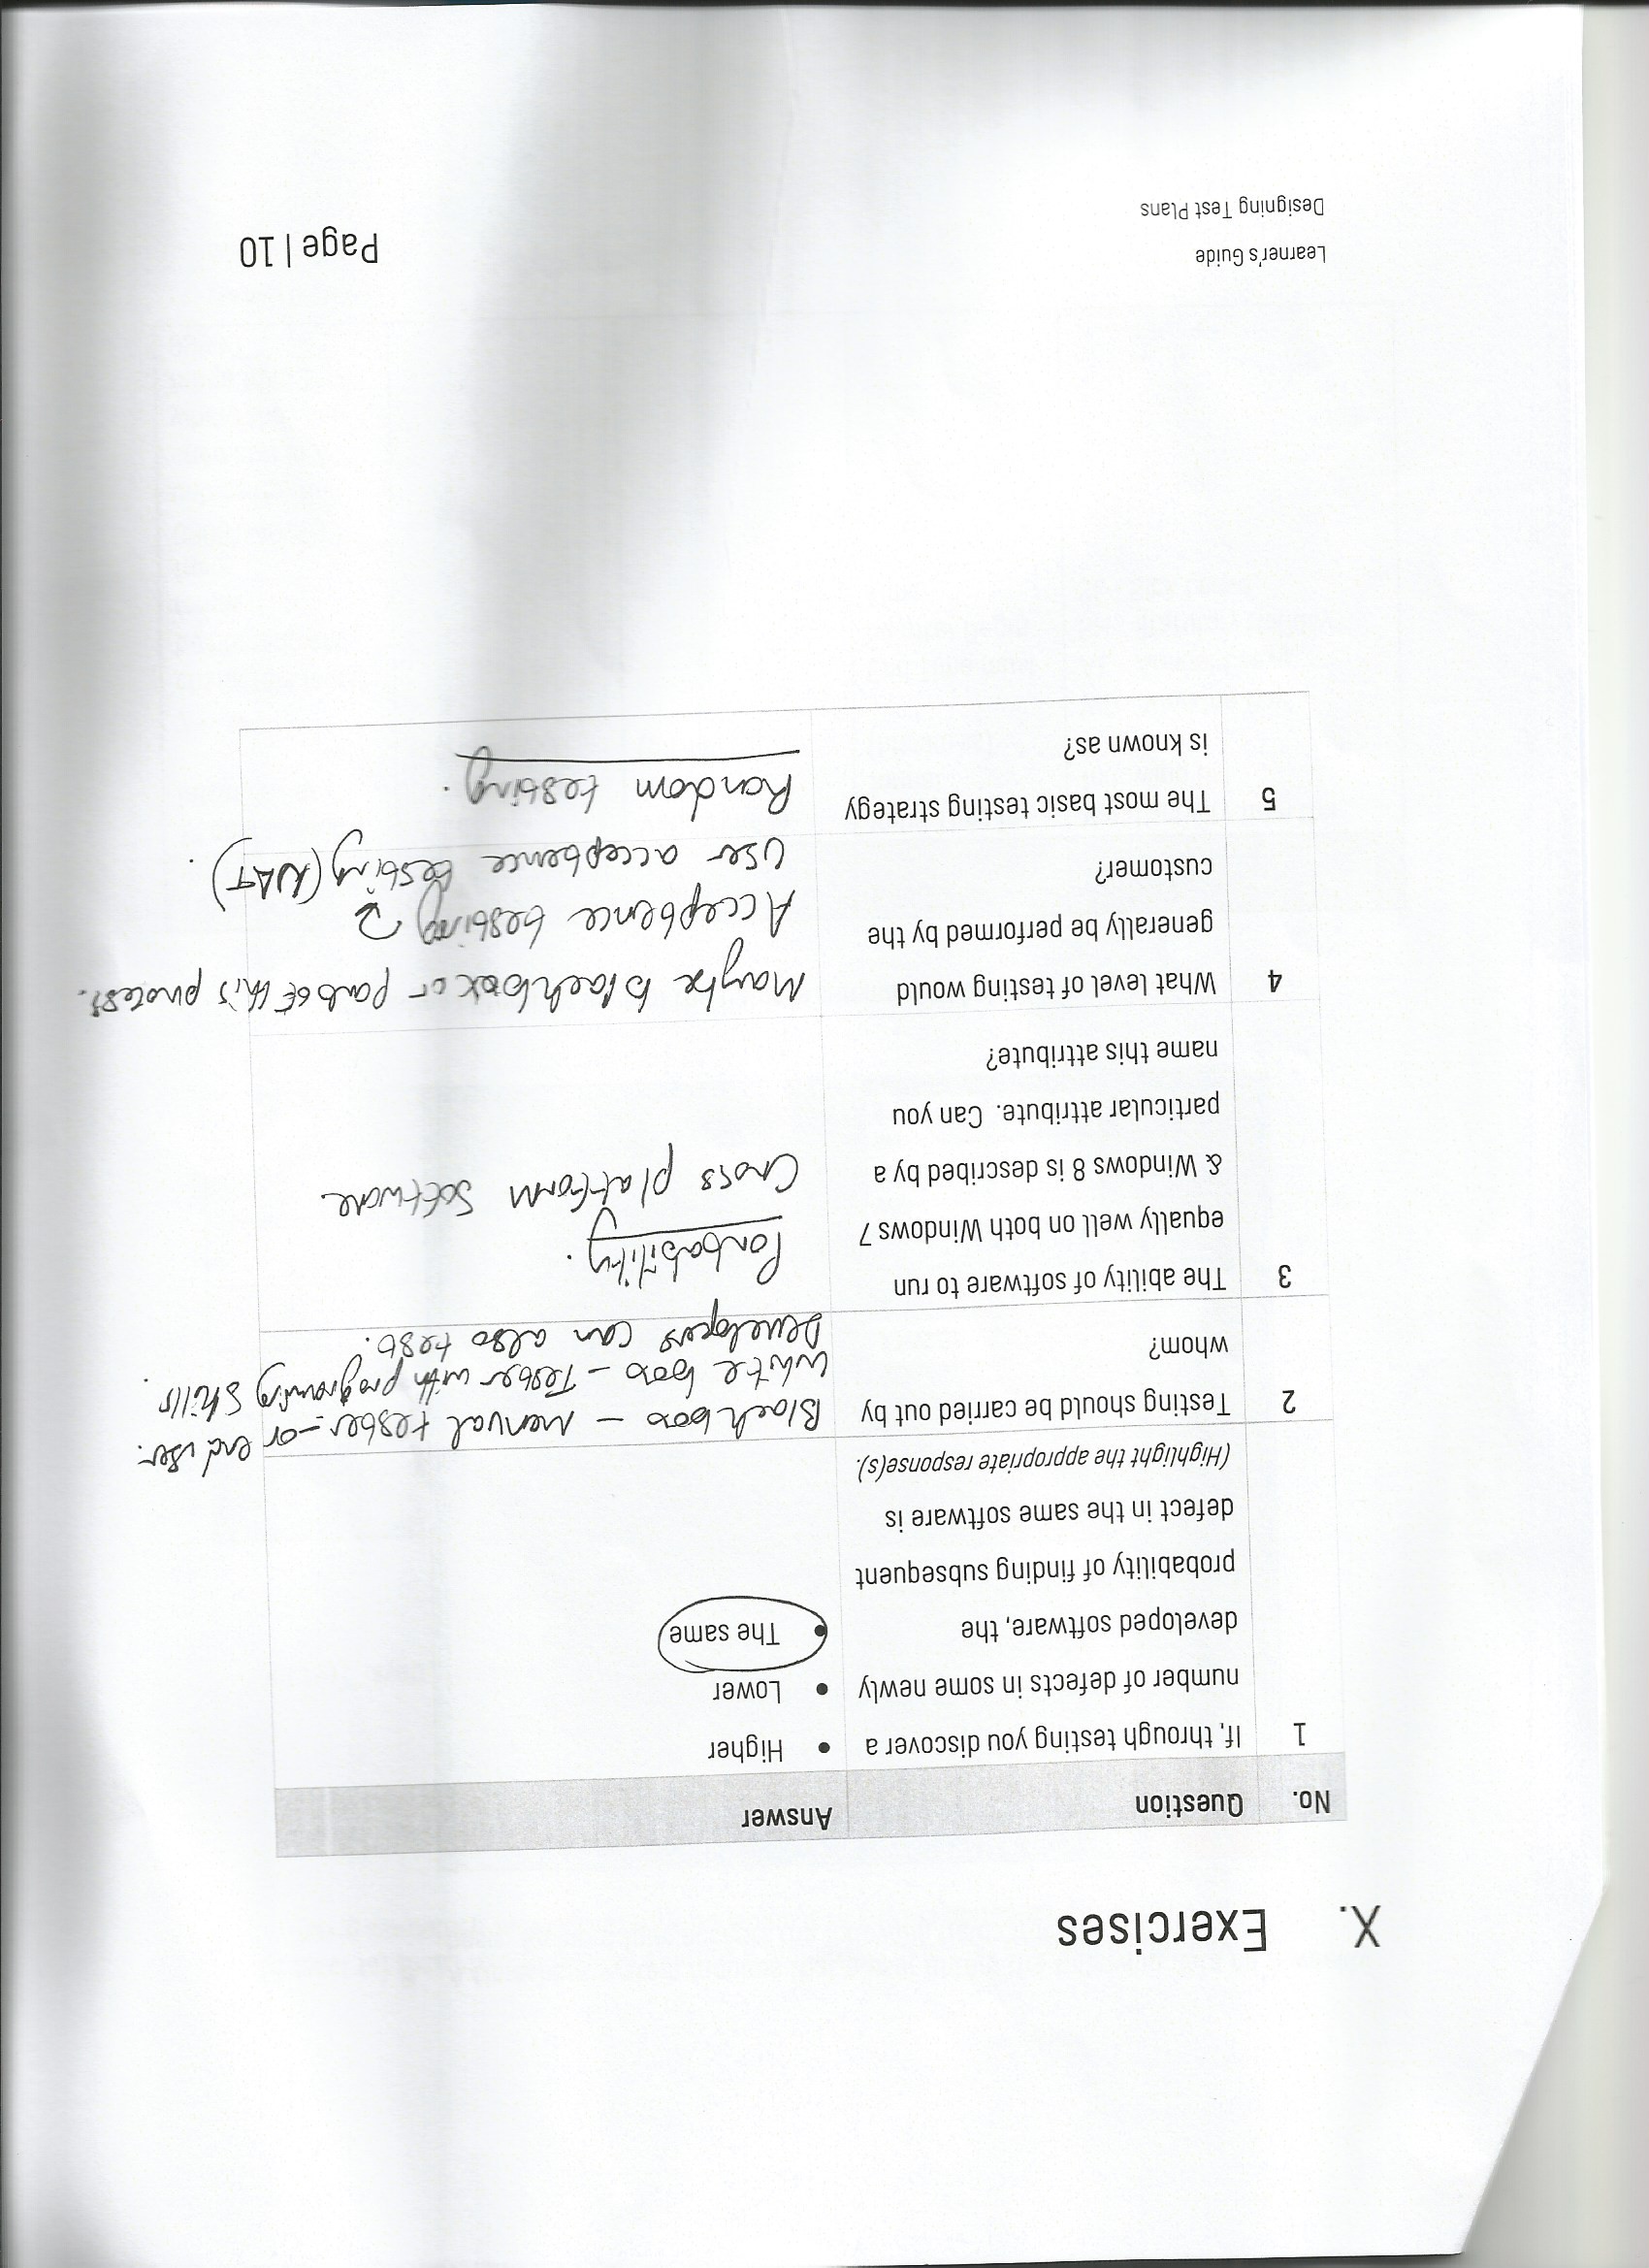 X. Exercises
No. Question Answer
1 If, through testing you discover a
number of defects in some newly
developed software, the
probability of finding subsequent
defect in the same software is
(Highlight the appropriate response(s).
• Higher
• Lower
• The same
2 Testing should be carried out by
whom?
Black box - manual tester or end user.
White box - Tester with programing skills.
Developers can also test.
3 The ability of software to run
equally well on both Windows 7
& Windows 8 is described by a
particular attribute. Can you
name this attribute?
Portability.
Cross platform software
4 What level of testing would
generally be performed by the
customer?
Maybe blackbox or part of this process.
Acceptence testing
User acceptence testing (UAT).
5 The most basic testing strategy
is known as?
Random testing.
Learner's Guide
Designing Test Plans
Page | 10